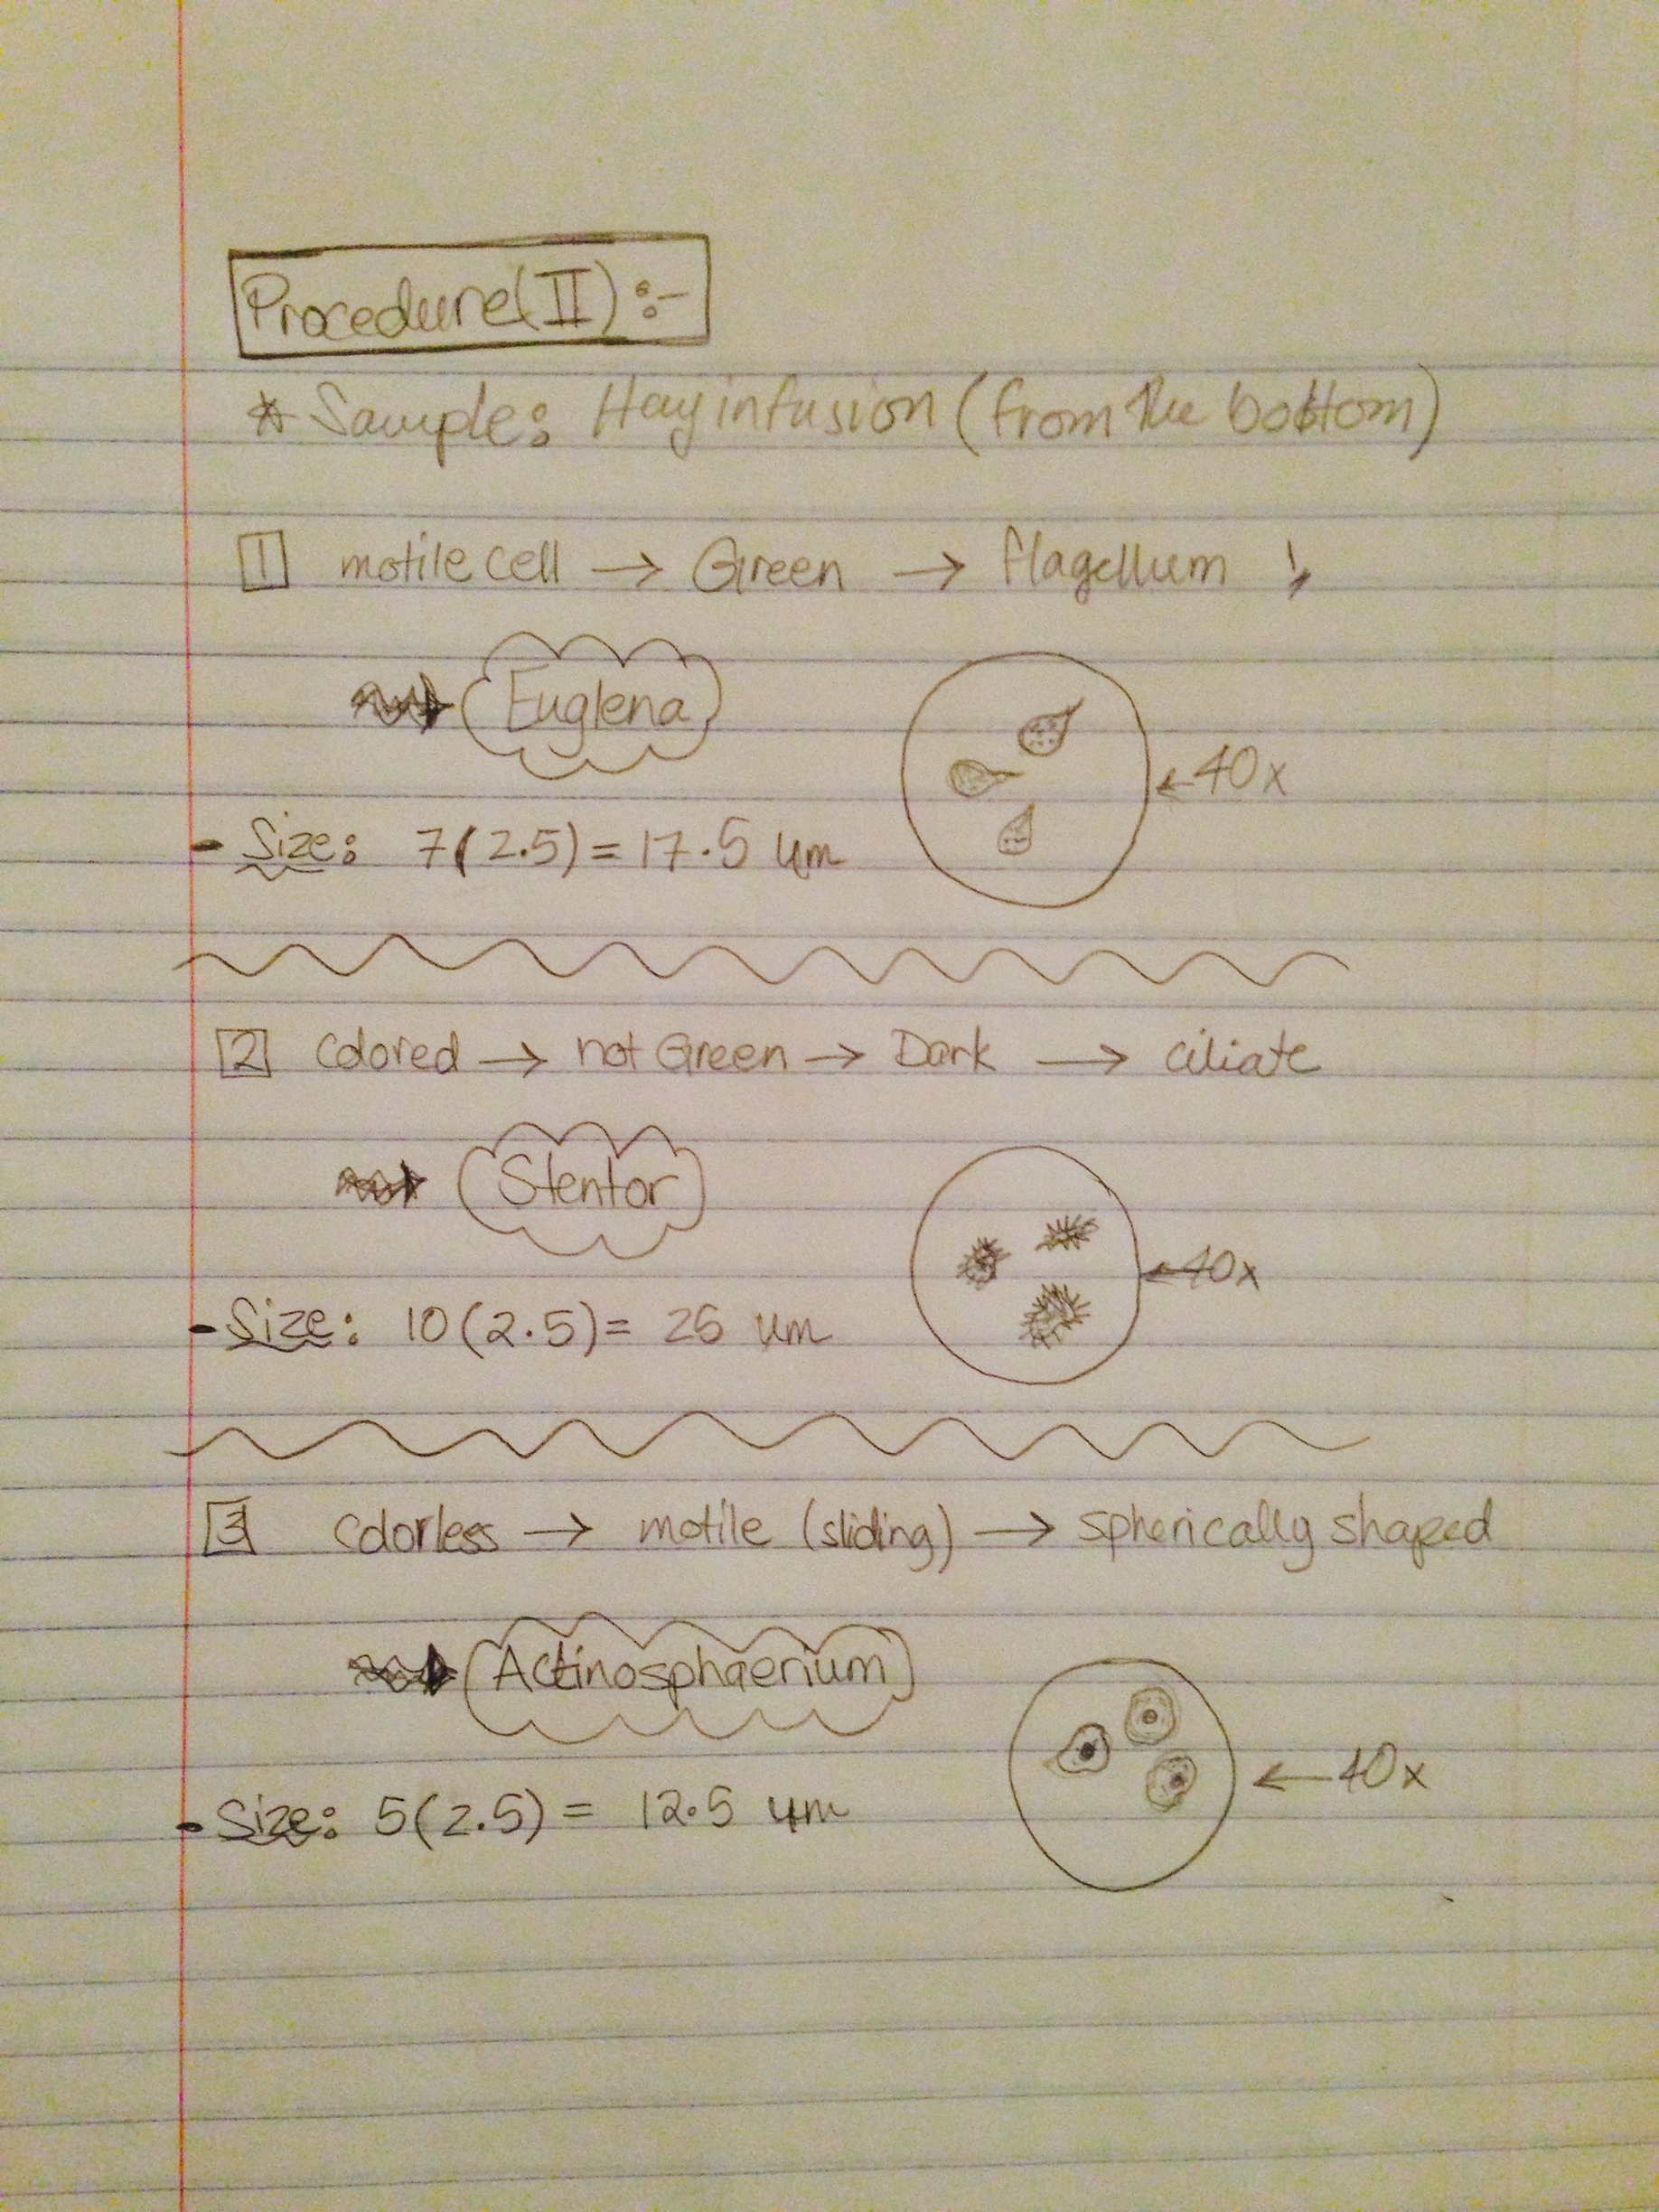 Procedure(II):-
* Sample: Hay infusion (from the bottom)
1 motile cell → Green → flagellum
Euglena
←40x
- Size: 7(2.5) = 17.5 um
2 Colored → not Green → Dark → ciliate
Stentor
←40x
- Size: 10(2.5) = 25 um
3 Colorless → motile (sliding) → spherically shaped
Actinosphaerium
←40x
- Size: 5(2.5) = 12.5 um